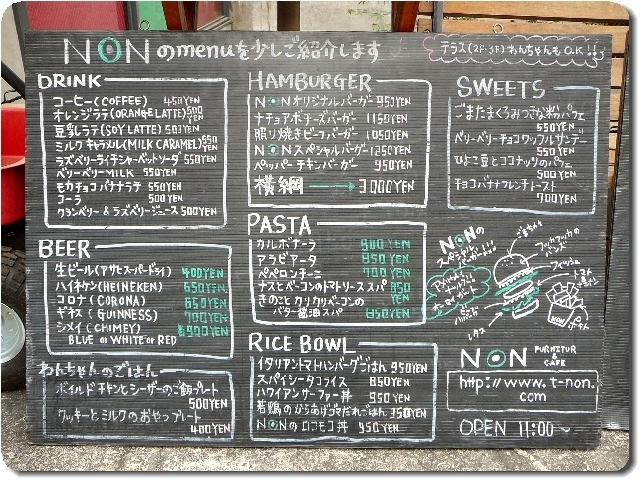 NONのmenuを少しご紹介します
テラス(2F・3F)わんちゃんもO.K!!
DRINK
コーヒー(COFFEE) 450YEN
オレンジラテ(ORANGE LATTE) 500YEN
豆乳ラテ(SOY LATTE) 500YEN
ミルクキャラメル(MILK CARAMEL) 550YEN
ラズベリーライチシャーベットソーダ 550YEN
ベリーベリーMILK 550YEN
モカチョコバナナラテ 550YEN
コーラ 500YEN
クランベリー&ラズベリージュース 500YEN
BEER
生ビール(アサヒスーパードライ) 400YEN
ハイネケン(HEINEKEN) 650YEN
コロナ(CORONA) 650YEN
ギネス(GUINNESS) 700YEN
シメイ(CHIMEY) 900YEN
BLUE or WHITE or RED
わんちゃんのごはん
ボイルドチキンとシーザーのご飯プレート
500YEN
クッキーとミルクのおやつプレート
400YEN
HAMBURGER
NONオリジナルバーガー 950YEN
ナチョアボチーズバーガー 1150YEN
照り焼きビーフバーガー 1050YEN
NONスペシャルバーガー 1250YEN
ペッパーチキンバーガー 950YEN
横綱 → 3000YEN
PASTA
カルボナーラ 800YEN
アラビアータ 850YEN
ペペロンチーニ 700YEN
ナスとベーコンのトマトソーススパ 850YEN
きのことカリカリベーコンの
バター醤油スパ 850YEN
RICE BOWL
イタリアントマトハンバーグごはん 950YEN
スパイシータコライス 850YEN
ハワイアンサーファー丼 950YEN
若鶏のからあげゴマだれごはん 950YEN
NONのロコモコ丼 950YEN
SWEETS
ごまたまくろみつきな粉パフェ
550YEN
ベリーベリーチョコワッフルサンデー
550YEN
ひよこ豆とココナッツのパフェ
550YEN
チョコバナナフレンチトースト
700YEN
NONの
ごまちゃん
レタス
ポテト
NON FURNITUR & CAFE
http://www.t-non.
com
OPEN 11:00~